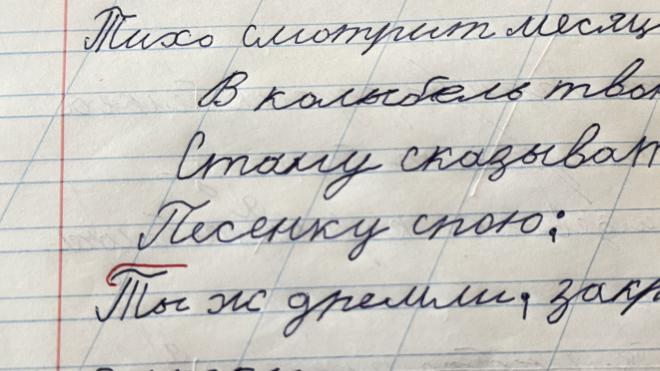 Тихо смотрит месяц
В колыбель тво
Стану сказыват
Песенку спою;
Ты ж дремли, закр